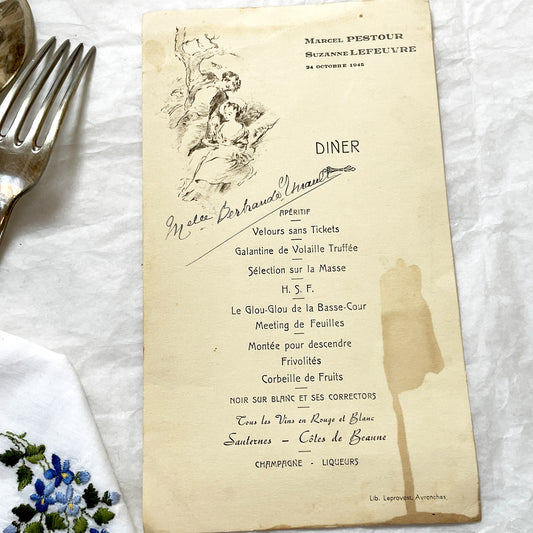 Marcel PESTOUR
Suzanne LEFEUVRE
24 OCTOBRE 1945
DINER
Melle Bertrande
APÉRITIF
Velours sans Tickets
Galantine de Volaille Truffée
Sélection sur la Masse
H. S. F.
Le Glou-Glou de la Basse-Cour
Meeting de Feuilles
Montée pour descendre
Frivolités
Corbeille de Fruits
NOIR SUR BLANC ET SES CORRECTORS
Tous les Vins en Rouge et Blanc
Sauternes — Côtes de Beaune
CHAMPAGNE - LIQUEURS
Lib. Leprovost, Avranches